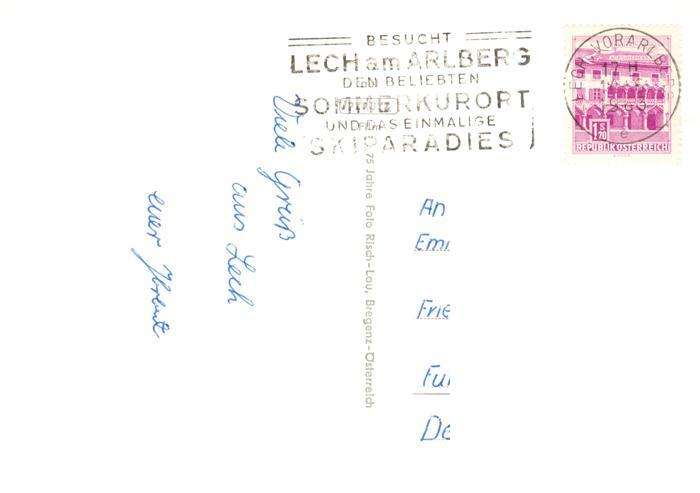 BESUCHT
LECH am ARLBERG
DEN BELIEBTEN
SOMMERKURORT
UND DAS EINMALIGE
SKIPARADIES
VORARLBERG
17 H
REPUBLIK ÖSTERREICH
Viele Grüß
aus Lech
euer
75 Jahre Foto Risch-Lau, Bregenz-Österreich
An
Emi
Frie
Fu
De